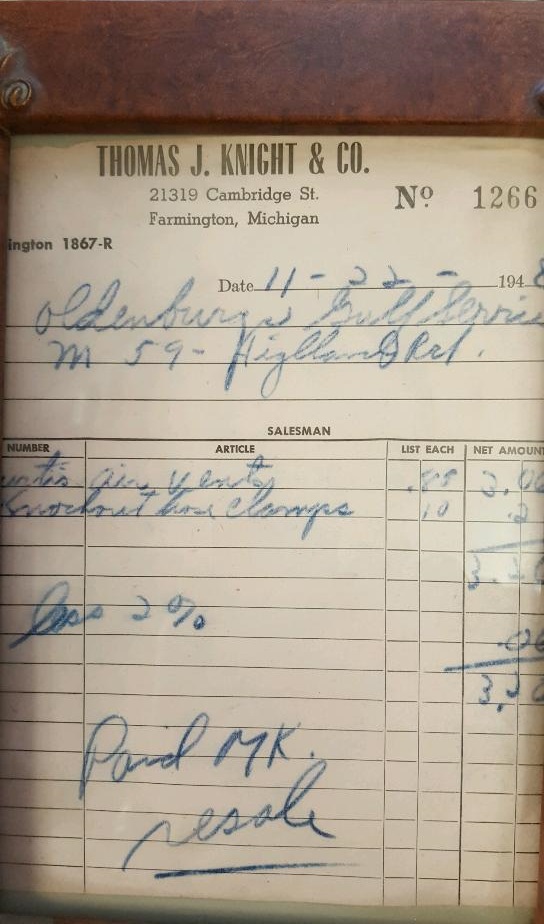 THOMAS J. KNIGHT & CO.
21319 Cambridge St.
Farmington, Michigan
Nº 1266
ington 1867-R
Date 11-22- 1948
Oldenburgs Gulf Service
M 59- Highland Rd.
SALESMAN
NUMBER ARTICLE LIST EACH NET AMOUN
air vents 3.00
Knockout hose clamps .10 .2
3.20
less 2% .06
3.
Paid MK.
resale